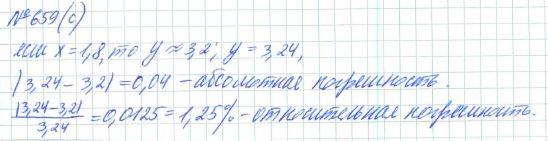 № 659 (с)
если x = 1,8, то y ≈ 3,2; y = 3,24,
|3,24 - 3,2| = 0,04 - абсолютная погрешность.
|3,24 - 3,2| / 3,24 = 0,0125 = 1,25% - относительная погрешность.